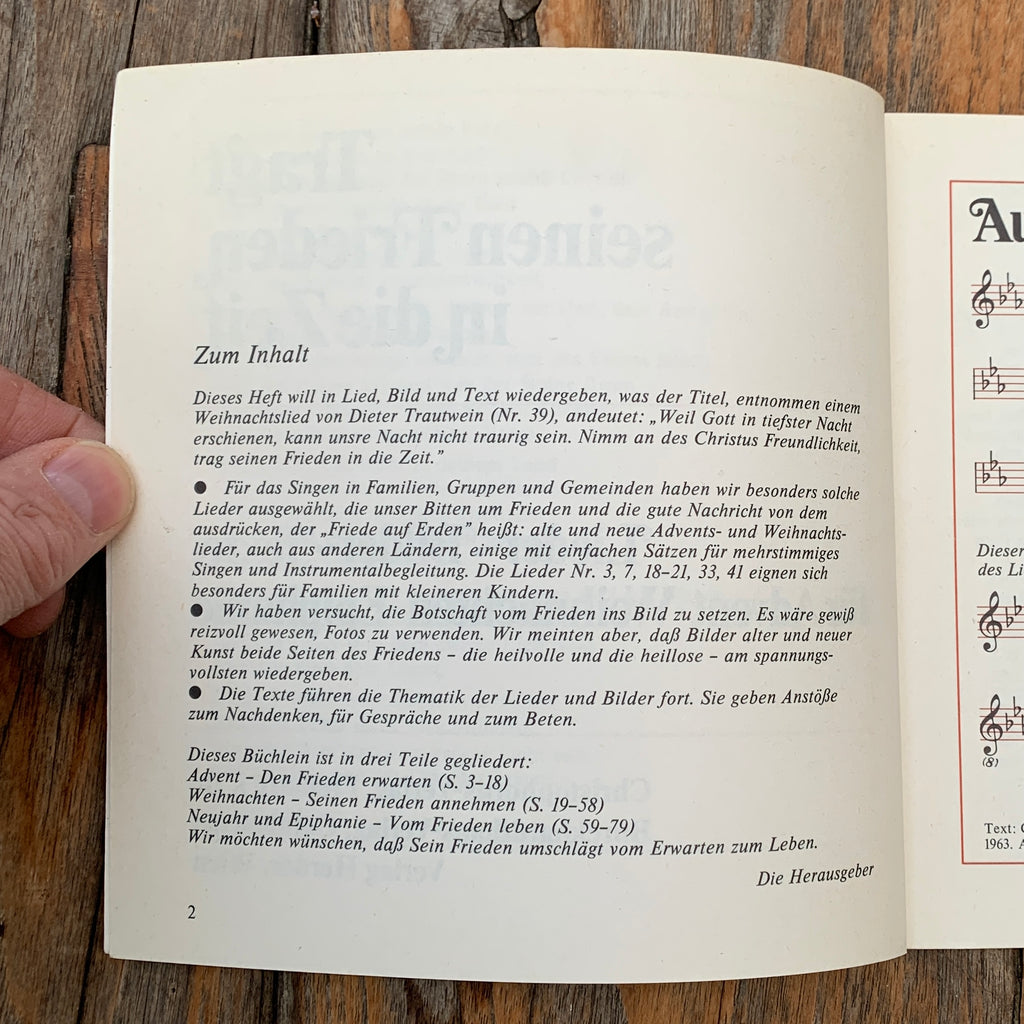 Zum Inhalt
Dieses Heft will in Lied, Bild und Text wiedergeben, was der Titel, entnommen einem
Weihnachtslied von Dieter Trautwein (Nr. 39), andeutet: „Weil Gott in tiefster Nacht
erschienen, kann unsre Nacht nicht traurig sein. Nimm an des Christus Freundlichkeit,
trag seinen Frieden in die Zeit.”
● Für das Singen in Familien, Gruppen und Gemeinden haben wir besonders solche
Lieder ausgewählt, die unser Bitten um Frieden und die gute Nachricht von dem
ausdrücken, der „Friede auf Erden” heißt: alte und neue Advents- und Weihnachts-
lieder, auch aus anderen Ländern, einige mit einfachen Sätzen für mehrstimmiges
Singen und Instrumentalbegleitung. Die Lieder Nr. 3, 7, 18–21, 33, 41 eignen sich
besonders für Familien mit kleineren Kindern.
● Wir haben versucht, die Botschaft vom Frieden ins Bild zu setzen. Es wäre gewiß
reizvoll gewesen, Fotos zu verwenden. Wir meinten aber, daß Bilder alter und neuer
Kunst beide Seiten des Friedens – die heilvolle und die heillose – am spannungs-
vollsten wiedergeben.
● Die Texte führen die Thematik der Lieder und Bilder fort. Sie geben Anstöße
zum Nachdenken, für Gespräche und zum Beten.
Dieses Büchlein ist in drei Teile gegliedert:
Advent – Den Frieden erwarten (S. 3–18)
Weihnachten – Seinen Frieden annehmen (S. 19–58)
Neujahr und Epiphanie – Vom Frieden leben (S. 59–79)
Wir möchten wünschen, daß Sein Frieden umschlägt vom Erwarten zum Leben.
Die Herausgeber
2
Au
Dieser
des Li
(8)
Text:
1963. A